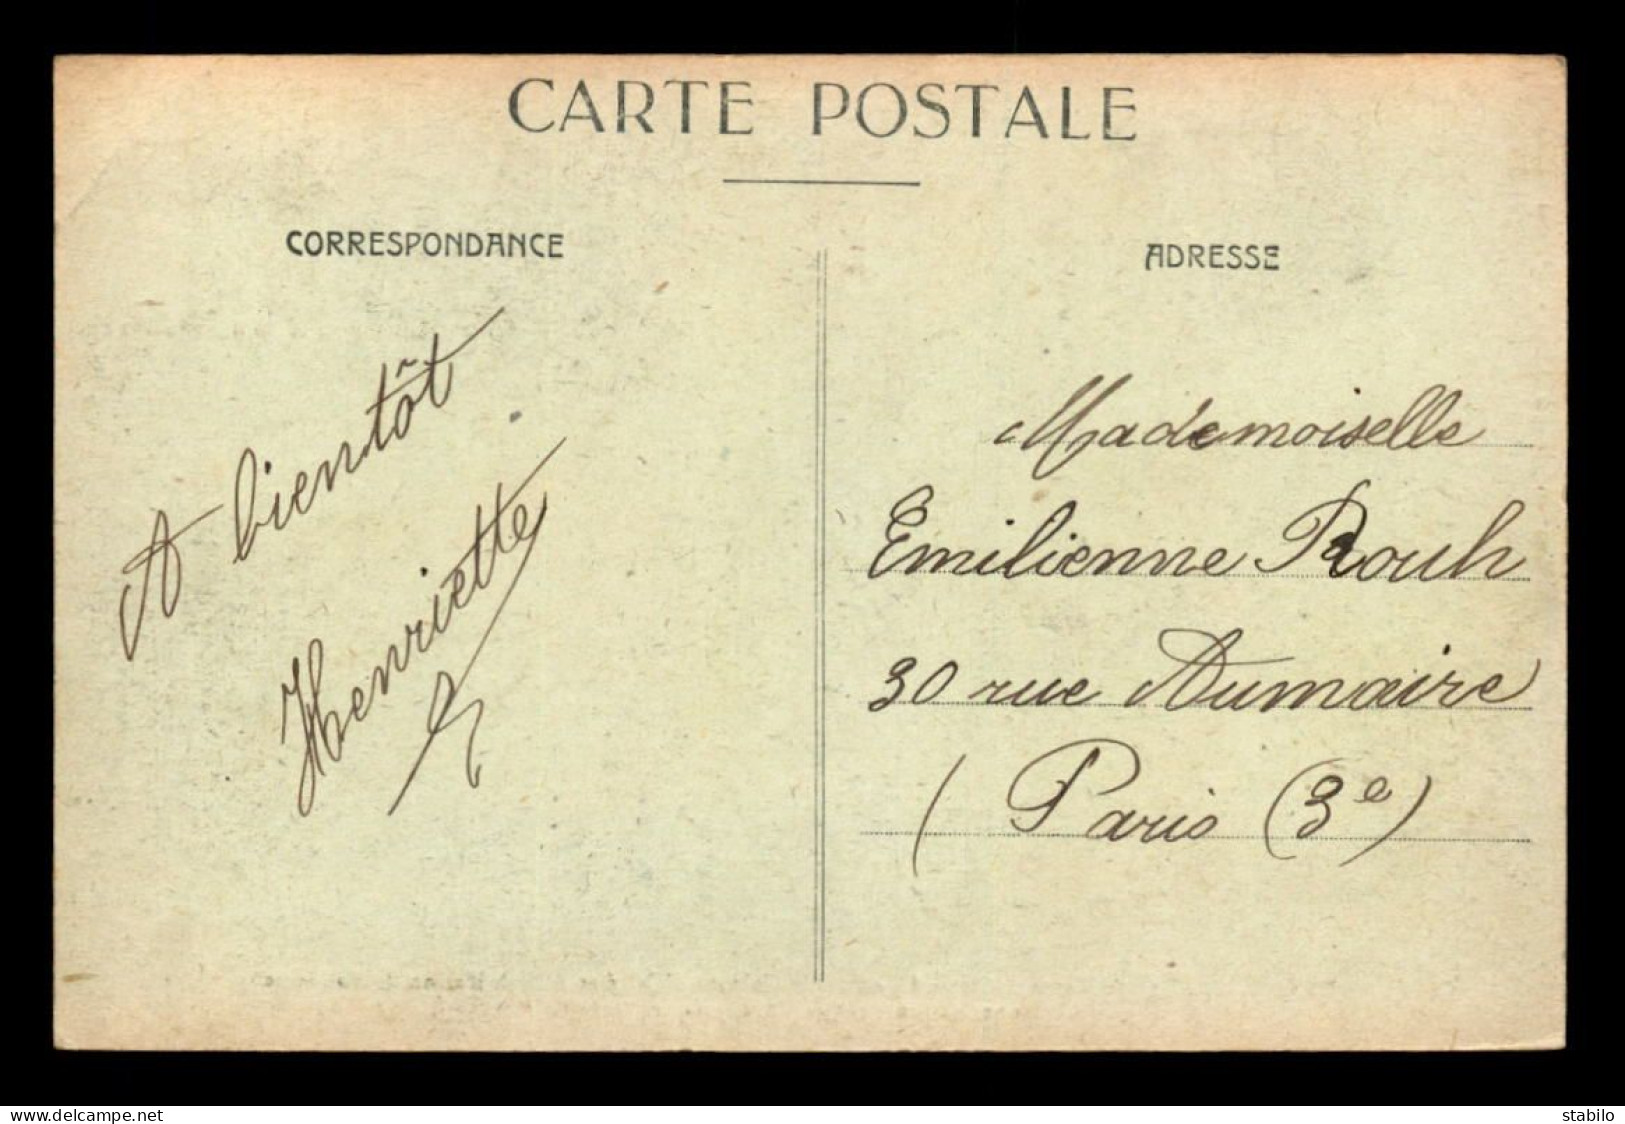 CARTE POSTALE
CORRESPONDANCE
ADRESSE
A bientôt
Henriette
Mademoiselle
Emilienne Rouh
30 rue Aumaire
( Paris (3e)
www.delcampe.net
stabilo